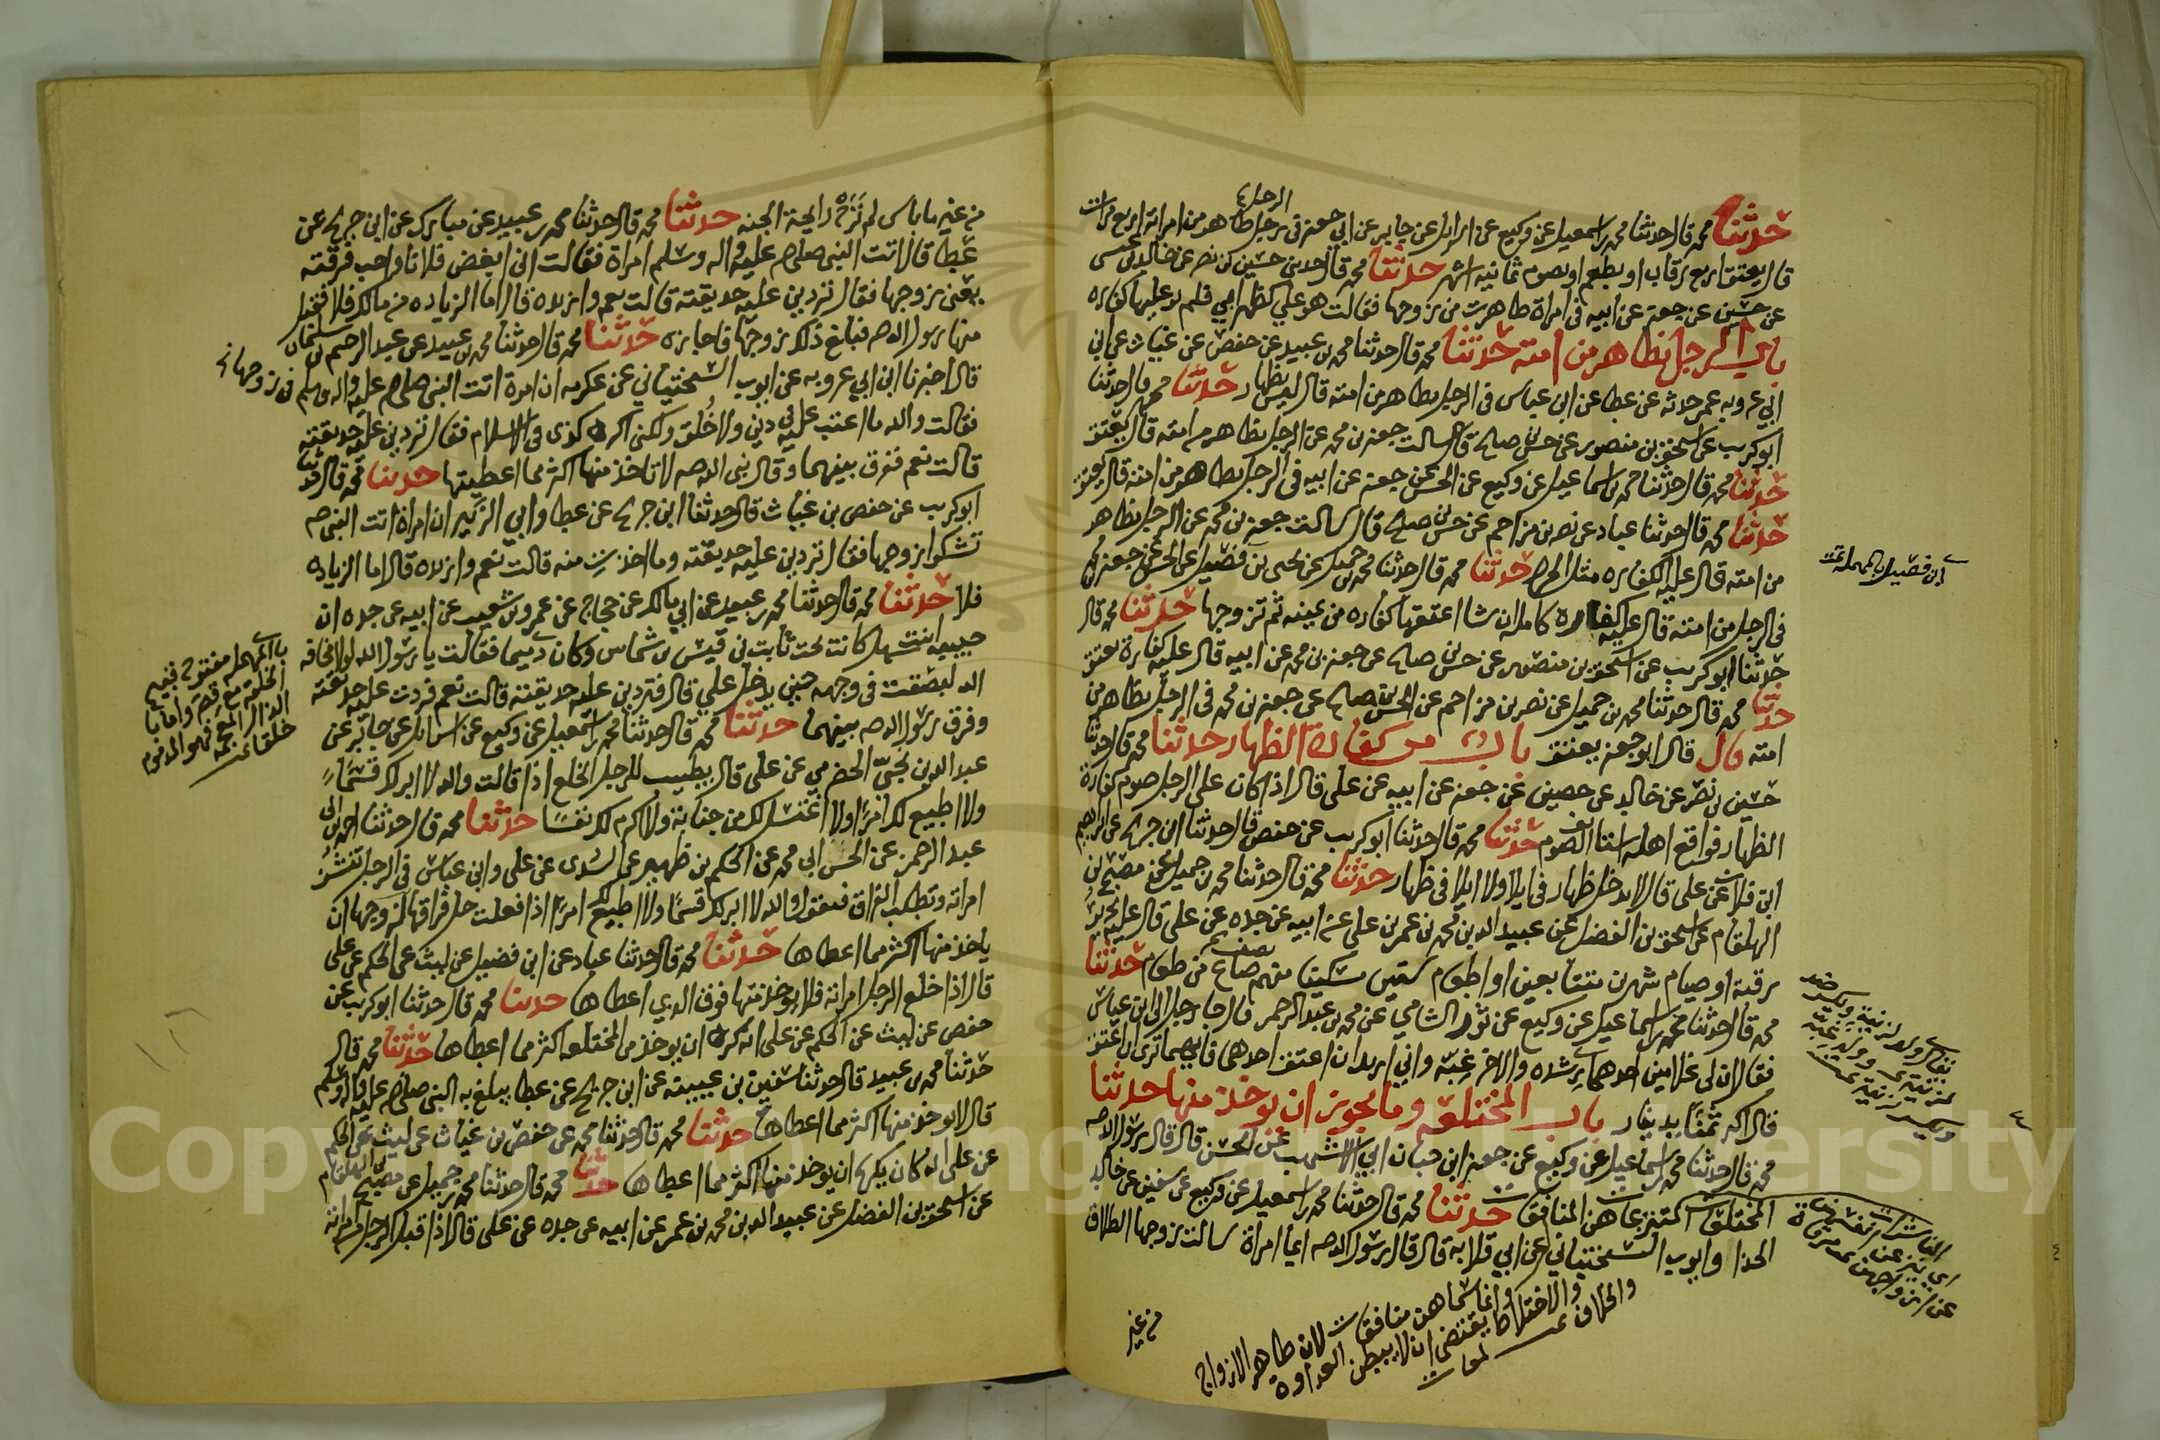 حدثنا محمد قال حدثنا محمد بن اسمعيل عن وكيع عن اسرائيل عن جابر عن ابي جعفر في رجل ظاهر من امراته اربع مرات
الرجل
قال يعتق اربع رقاب او يطعم او يصوم ثمانية اشهر حدثنا محمد قال حدثني حسين بن نصر عن خالد بن عيسى
عن حسين عن جعفر عن ابيه في امراة ظاهرت من زوجها فقالت هو علي كظهر ابي فلم ير عليها كفاره
باب الرجل يظاهر من امته حدثنا محمد قال حدثنا محمد بن عبيد عن حفص عن غياث عن ابن
ابي عروبه عمن حدثه عن عطا عن ابن عباس في الرجل يظاهر من امته قال ليس بظهار حدثنا محمد قال حدثنا
ابو كريب عن اسحق بن منصور عن حسن بن صالح قال سالت جعفر بن محمد عن الرجل يظاهر من امته قال يعتق
حدثنا محمد قال حدثنا محمد بن اسماعيل عن وكيع عن الحسن عن جعفر عن ابيه في الرجل يظاهر من امته قال يعتق
حدثنا محمد قال حدثنا عباد عن نصر بن مزاحم عن حسن بن صالح قال سالت جعفر بن محمد عن الرجل يظاهر
من امته قال عليه الكفاره مثل الحره حدثنا محمد قال حدثنا محمد بن جميل عن يحيى بن فضيل عن الحسن عن جعفر بن محمد
في الرجل من امته قال عليه كفارة كامله ان شا اعتقها كفاره من يمينه ثم تزوجها حدثنا محمد قال
حدثنا ابو كريب عن اسحق بن منصور عن حسن بن صالح عن جعفر بن محمد عن ابيه قال عليه كفارة يعتق
حدثنا محمد قال حدثنا محمد بن جميل عن نصر بن مزاحم عن الحسن بن صالح عن جعفر بن محمد في الرجل يظاهر من
امته قال قال ابو جعفر يعتق باب من كفارة الظهار حدثنا محمد قال حدثنا
حسين بن نصر عن خالد عن حصين عن جعفر عن ابيه عن علي قال اذا كان على الرجل صوم كفارة
الظهار فواقع اهله استانف الصوم حدثنا محمد قال حدثنا ابو كريب عن حفص قال حدثنا ابن جريج عن ابراهيم
ابن فلان عن علي قال لا يدخل ظهار في ايلا ولا ايلا في ظهار حدثنا محمد قال حدثنا محمد بن جميل عن مصبح بن
الهلقام عن اسحق بن الفضل عن عبيد الله بن محمد بن عمر بن علي عن ابيه عن جده عن علي قال عليه تحرير
رقبة او صيام شهرين متتابعين او اطعام ستين مسكينا نصف صاع من طعام حدثنا
محمد قال حدثنا محمد بن اسماعيل عن وكيع عن ثور الشامي عن محمد بن عبد الرحمن قال جا رجل الى ابن عباس
فقال ان لي غلامين احدهما لرشده والاخر لغيه واني اريد ان اعتق احدهما فايهما ترى ان اعتق
قال اكثرهما ثمنا بدينار باب المختلعه وما يجوز ان يوخذ منها حدثنا
محمد قال حدثنا محمد بن اسماعيل عن وكيع عن جعفر ابن حبان ابي الاشهب عن الحسن قال قال رسول الله صم
المختلعات المتنزعات هن المنافقات حدثنا محمد قال حدثنا محمد بن اسمعيل عن وكيع عن سفين عن خالد
الحذا وايوب السختياني عن ابي قلابه قال قال رسول الله صم ايما امراة سالت زوجها الطلاق
من غير
ابن فضيل بالمهملة
وانما سماهن منافقات لان ظاهر الازواج
والاختلاط يقتضي ان لا يبطن العداوه
والخلاف
من غير ما باس لم تَرَحْ رايحة الجنه حدثنا محمد قال حدثنا محمد بن عبيد عن مبارك عن ابن جريج عن
عطا قال اتت النبي صلى الله عليه واله وسلم امراة فقالت اني ابغض فلانا واحب فرقته
يعني زوجها فقال تردين عليه حديقته قالت نعم وازيده قال اما الزياده من مالك فلا فاختلع
منها رسول الله صم فبلغ ذلك زوجها فاجازه حدثنا محمد قال حدثنا محمد بن عبيد عن عبد الرحيم بن سليمان
قال اخبرنا ابن ابي عروبه عن ايوب السختياني عن عكرمه ان امرة اتت النبي صلى الله عليه واله وسلم في زوجها
فقالت والله ما اعتب عليه في دين ولا خُلُق ولكني اكره كفري في الاسلام فقال تردين عليه حديقته
قالت نعم ففرق بينهما وقال نبي الله صم لا تاخذ منها اكثر مما اعطيتها حدثنا محمد قال حدثنا
ابو كريب عن حفص بن غياث قال حدثنا ابن جريج عن عطا وابي الزبير ان امراة اتت النبي صم
تشكوا زوجها فقال تردين عليه حديقته وما اخذتِ منه قالت نعم وازيده قال اما الزياده
فلا حدثنا محمد قال حدثنا محمد بن عبيد عن ابي مالك عن حجاج عن عمرو بن شعيب عن ابيه عن جده ان
حبيبه ابنت سهل كانت تحت ثابت بن قيس بن شماس وكان دميما فقالت يا رسول الله لولا مخافه
الله لبصقت في وجهه حين يدخل علي قال فتردين عليه حديقته قالت نعم فردت عليه حديقته
وفرق رسول الله صم بينهما حدثنا محمد قال حدثنا محمد بن اسمعيل عن وكيع عن اسرايل عن جابر عن
عبد الله بن نجيّ الحضرمي عن علي قال يطيب للرجل الخلع اذا قالت والله لا ابر لك قسمًا
ولا اطيع لك امرًا ولا اغتسل لك من جنابة ولا اكرم لك نفسًا حدثنا محمد قال حدثنا احمد بن ابي
عبد الرحمن عن الحسن ابي محمد عن الحكم بن ظهير عن السُدي عن علي وابن عباس في الرجل تنشز
امراته وتطلب الفراق فتقول والله لا ابر لك قسمًا ولا اطيع لك امرًا اذا فعلت حل فراقها لزوجها ان
ياخذ منها اكثر مما اعطاها حدثنا محمد قال حدثنا عباد عن ابن فضيل عن ليث عن الحكم عن علي
قال اذا خلع الرجل امراته فلا يوخذ منها فوق الذي اعطاها حدثنا محمد قال حدثنا ابو كريب عن
حفص عن ليث عن الحكم عن علي انه كره ان يوخذ من المختلعه اكثر مما اعطاها حدثنا محمد قال
حدثنا محمد بن عبيد قال حدثنا سفين بن عيينه عن ابن جريج عن عطا يبلغ به النبي صلى الله عليه واله وسلم
قال لا يوخذ منها اكثر مما اعطاها حدثنا محمد قال حدثنا محمد عن حفص بن غياث عن ليث عن الحكم
عن علي انه كان يكره ان يوخذ منها اكثر مما اعطاها حدثنا محمد قال حدثنا محمد بن جميل عن مصبح بن الهلقام
عن اسحق بن الفضل عن عبيد الله بن محمد بن عمر عن ابيه عن جده عن علي قال اذا قبل الرجل من امراته
بالمهمله مفتوحة قبيح
الخلقة مع قصر واما با
الذال المعجمه فهو المذموم
خلقا
Copyright © King Saud University